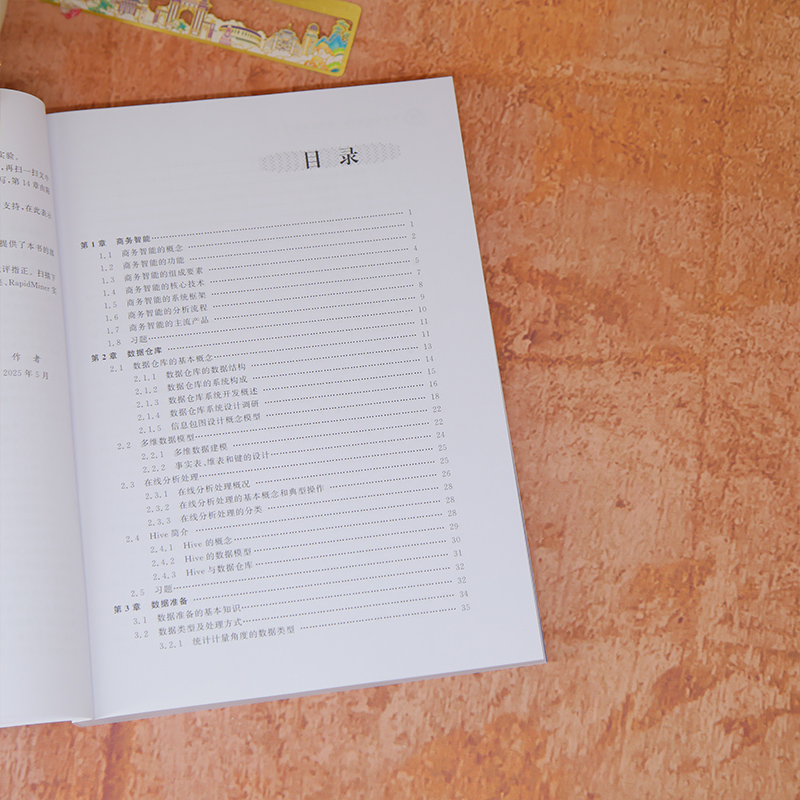 实验。
,再扫一扫文中
写,第14章由戴
支持,在此表示
提供了本书的思
批评指正。扫描下
、RapidMiner 实
作 者
2025年5月
目 录
第1章 商务智能 1
1.1 商务智能的概念 1
1.2 商务智能的功能 2
1.3 商务智能的组成要素 4
1.4 商务智能的核心技术 5
1.5 商务智能的系统框架 7
1.6 商务智能的分析流程 8
1.7 商务智能的主流产品 9
1.8 习题 10
第2章 数据仓库 11
2.1 数据仓库的基本概念 11
2.1.1 数据仓库的数据结构 13
2.1.2 数据仓库的系统构成 14
2.1.3 数据仓库系统开发概述 15
2.1.4 数据仓库系统设计调研 16
2.1.5 信息包图设计概念模型 18
2.2 多维数据模型 22
2.2.1 多维数据建模 22
2.2.2 事实表、维表和键的设计 24
2.3 在线分析处理 25
2.3.1 在线分析处理概况 25
2.3.2 在线分析处理的基本概念和典型操作 26
2.3.3 在线分析处理的分类 28
2.4 Hive简介 28
2.4.1 Hive的概念 28
2.4.2 Hive的数据模型 29
2.4.3 Hive与数据仓库 30
2.5 习题 31
第3章 数据准备 32
3.1 数据准备的基本知识 32
3.2 数据类型及处理方式 34
3.2.1 统计计量角度的数据类型 35